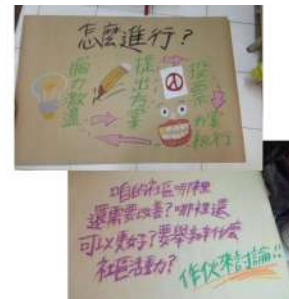 怎麼進行?
腦力激盪
提出方案
投票
方案執行
咱的社區哪裡
還需要改善?哪裡還
可以更好?要舉辦什麼
社區活動?
作伙來討論!!